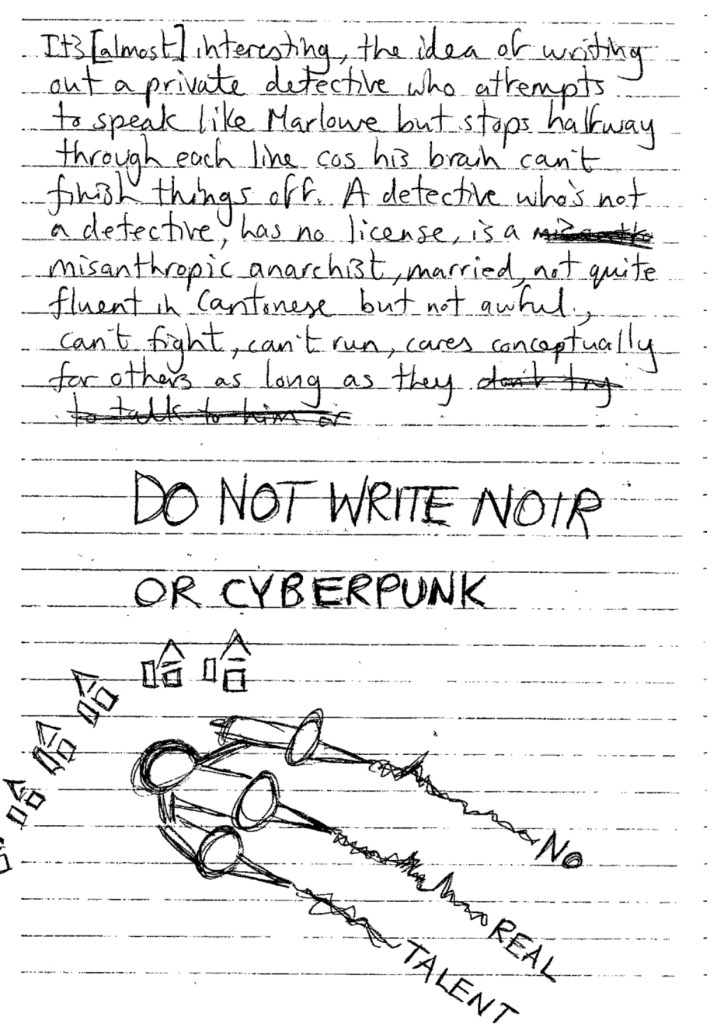 Its [almost] interesting, the idea of writing
out a private detective who attempts
to speak like Marlowe but stops halfway
through each line cos his brain can't
finish things off. A detective who's not
a detective, has no license, is a
misanthropic anarchist, married, not quite
fluent in Cantonese but not awful,
can't fight, can't run, cares conceptually
for others as long as they don't try
to talk to him or
DO NOT WRITE NOIR
OR CYBERPUNK
哈哈哈哈哈
NO
REAL
TALENT